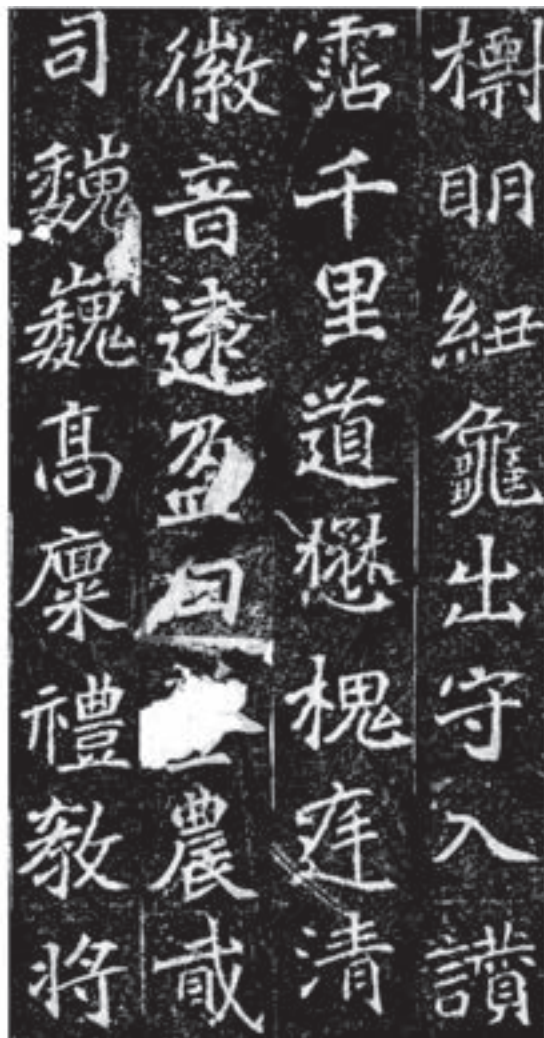 樹明紐龜出守入讚
霑千里道懋槐庭清
徽音遠盈曰農戢
司巍巍高廩禮教將